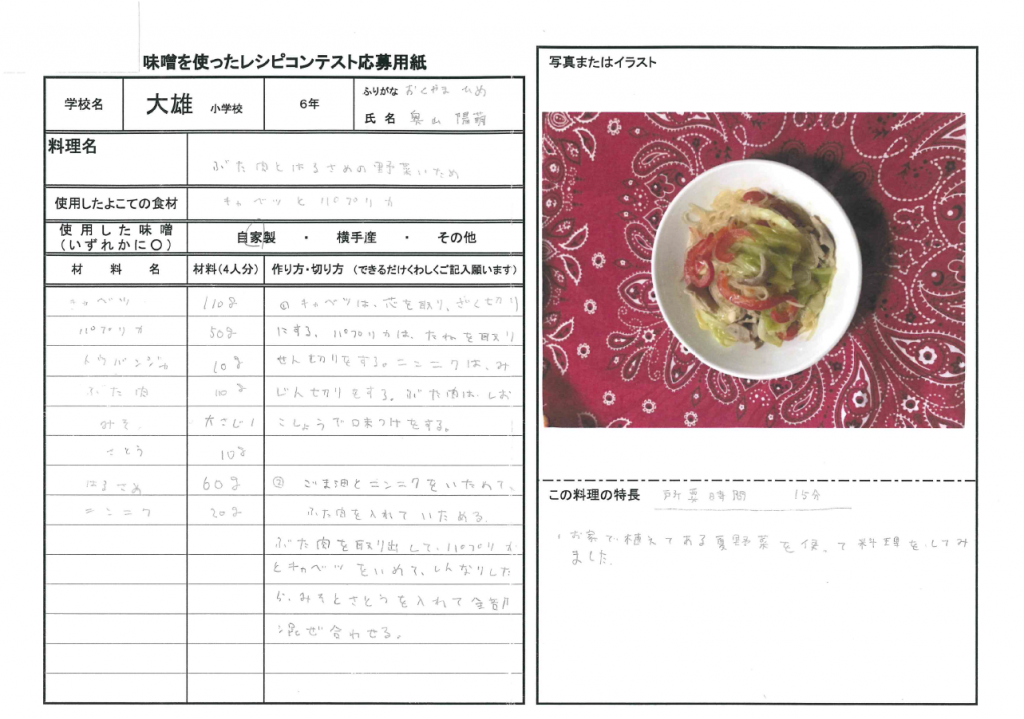 味噌を使ったレシピコンテスト応募用紙
学校名 大雄 小学校 6年 ふりがな おくやま ひめ
氏名 奥山 陽萌
料理名 ぶた肉とはるさめの野菜いため
使用したよこての食材 キャベツとパプリカ
使用した味噌(いずれかに〇) 自家製 ・ 横手産 ・ その他
材料名 材料(4人分) 作り方・切り方 (できるだけくわしくご記入願います)
キャベツ 110g ① キャベツは、芯を取り、ざく切り
パプリカ 50g にする。パプリカは、たねを取り
トウバンジャン 10g せん切りをする。ニンニクは、み
ぶた肉 110g じん切りをする。ぶた肉は、しお
みそ 大さじ1 こしょうで味つけをする。
さとう 10g
はるさめ 60g ② ごま油とニンニクをいためて、
ニンニク 20g ぶた肉を入れていためる。
ぶた肉を取り出して、パプリカ
とキャベツをいめて、しんなりした
ら、みそとさとうを入れて全部
混ぜ合わせる。
写真またはイラスト
この料理の特長 所要時間 15分
お家で植えてある夏野菜を使って料理をしてみ
ました。